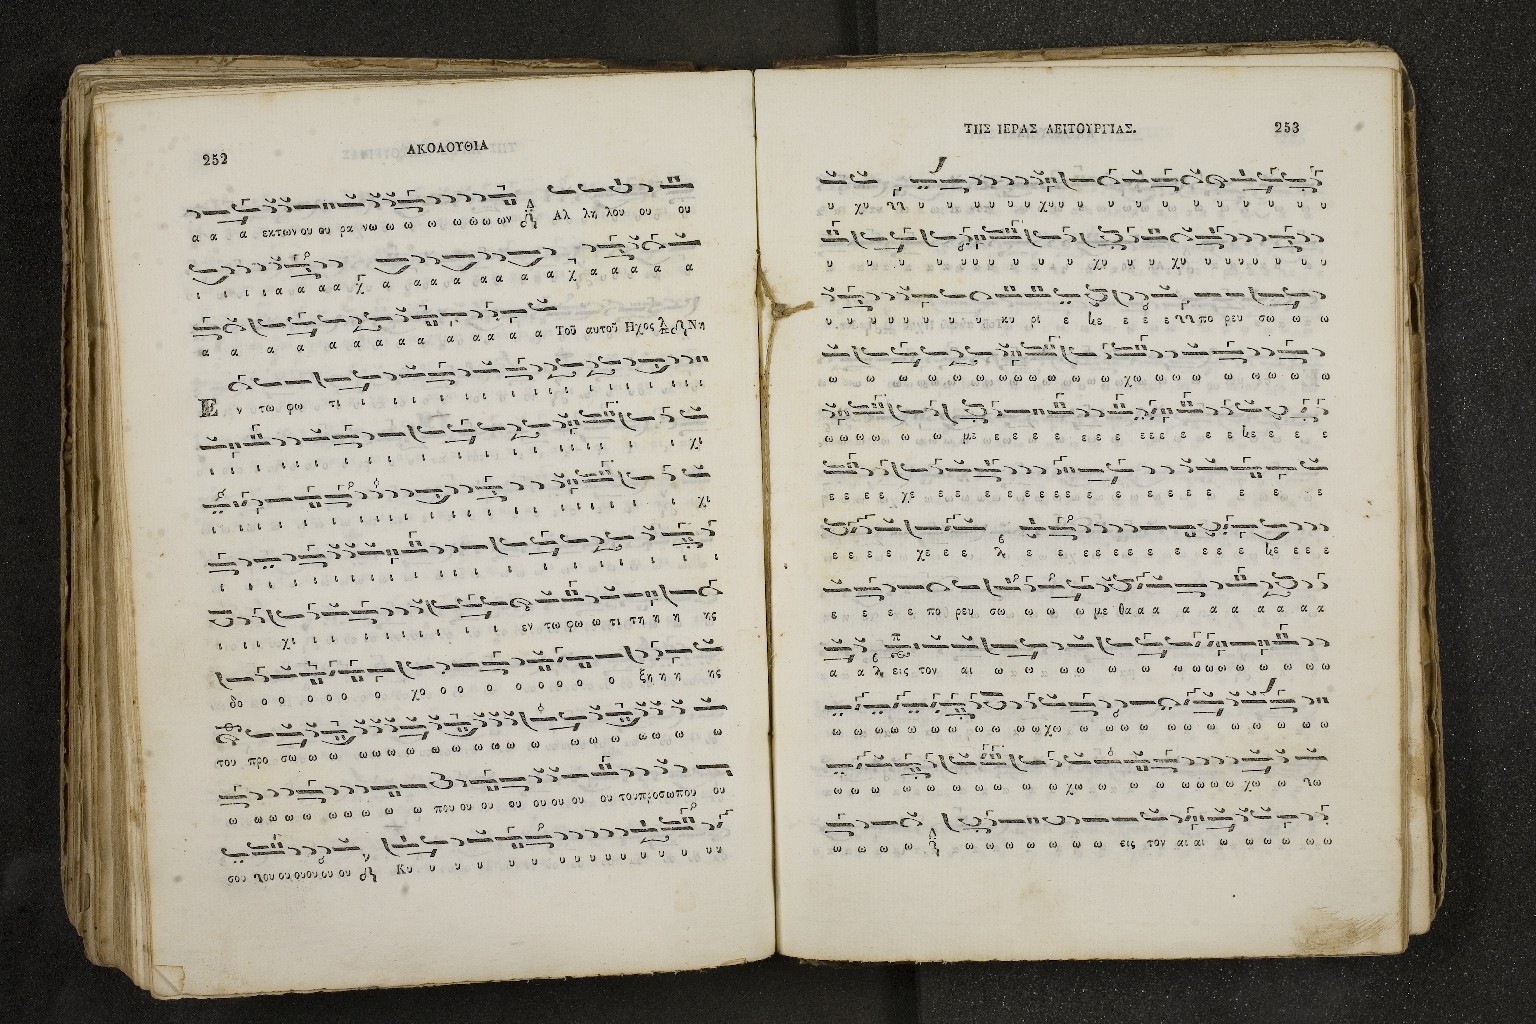 252
ΑΚΟΛΟΥΘΙΑ
α α α εκτωνουου ρα νω ω ω ω ω ω ω ων Αλ λη λου ου ου
ι ι ι ι α α α α χ α α α α α α α α α χ α α α α α α
α α α α α α α α α α α α α α Τοῦ αυτοῦ Ηχος Νη
Εν τω φω τι ι ι ι ι ι ι ι ι ι ι ι ι ι
ι ι ι ι ι ι ι ι ι ι ι ι ι ι ι ι ι ι χι
ι ι ι ι ι ι ι ι ι ι ι ι ι ι ι ι ι ι ι ι χι
ι ι ι ι ι ι ι ι ι ι ι ι ι ι ι ι
ι ι ι χι ι ι ι ι ι ι ι ι ι εν τω φω ω τι τη η η ης
δο ο ο ο ο ο ο χο ο ο ο ο ο ο ο ο ξη η η ης
του προ σω ω ω ω ω ω ω ω ω ω ω ω ω ω ω ω ω ω ω ω
ω ω ω ω ω ω ω ω ω ω που ου ου ου ου ου ου ου τουπροσωπου ου
σου χου ου ουου ου ου Κυ υ υ υ υ υ υ υ υ υ υ υ υ υ υυ
ΤΗΣ ΙΕΡΑΣ ΛΕΙΤΟΥΡΓΙΑΣ.
253
υ χυ υ υ υ υ υ υ χυυ υ υ υ υ υ υ υ υ υ
υ υ υ υ υ υ υ υ υ υ χυ υ υ χυ υ υ υ υ υ υ υ
υ υ υ υ υ υ υ υ υ κυ ρι ε ε ε ε πο ρευ σω ω ω
ω ω ω ω ω ω ω ω ω ω ω ω ω χω ω ω ω ω ω ω ω ω
ω ω ω ω ω ω με ε ε ε ε ε ε ε ε ε ε ε ε ε ε ε ε
ε ε ε ε χε ε ε ε ε ε ε ε ε ε ε ε ε ε ε ε ε ε ε
ε ε ε ε χε ε ε ε ε ε ε ε ε ε ε ε ε ε ε ε ε ε
ε ε ε ε πο ρευ σω ω ω ω με θα α α α α α α α α α
α α εις τον αι ω ω ω ω ω ω ω ω ω ω ω ω ω ω ω ω
ω ω ω ω ω ω ω ω ω ω ω χω ω ω ω ω ω ω ω ω ω ω ω
ω ω ω ω ω ω ω ω ω χω ω ω ω ω ω ω ω χω ω
ω ω ω ω ω ω ω ω ω ω ω ω εις τον αι αι ω ω ω ω ω ω